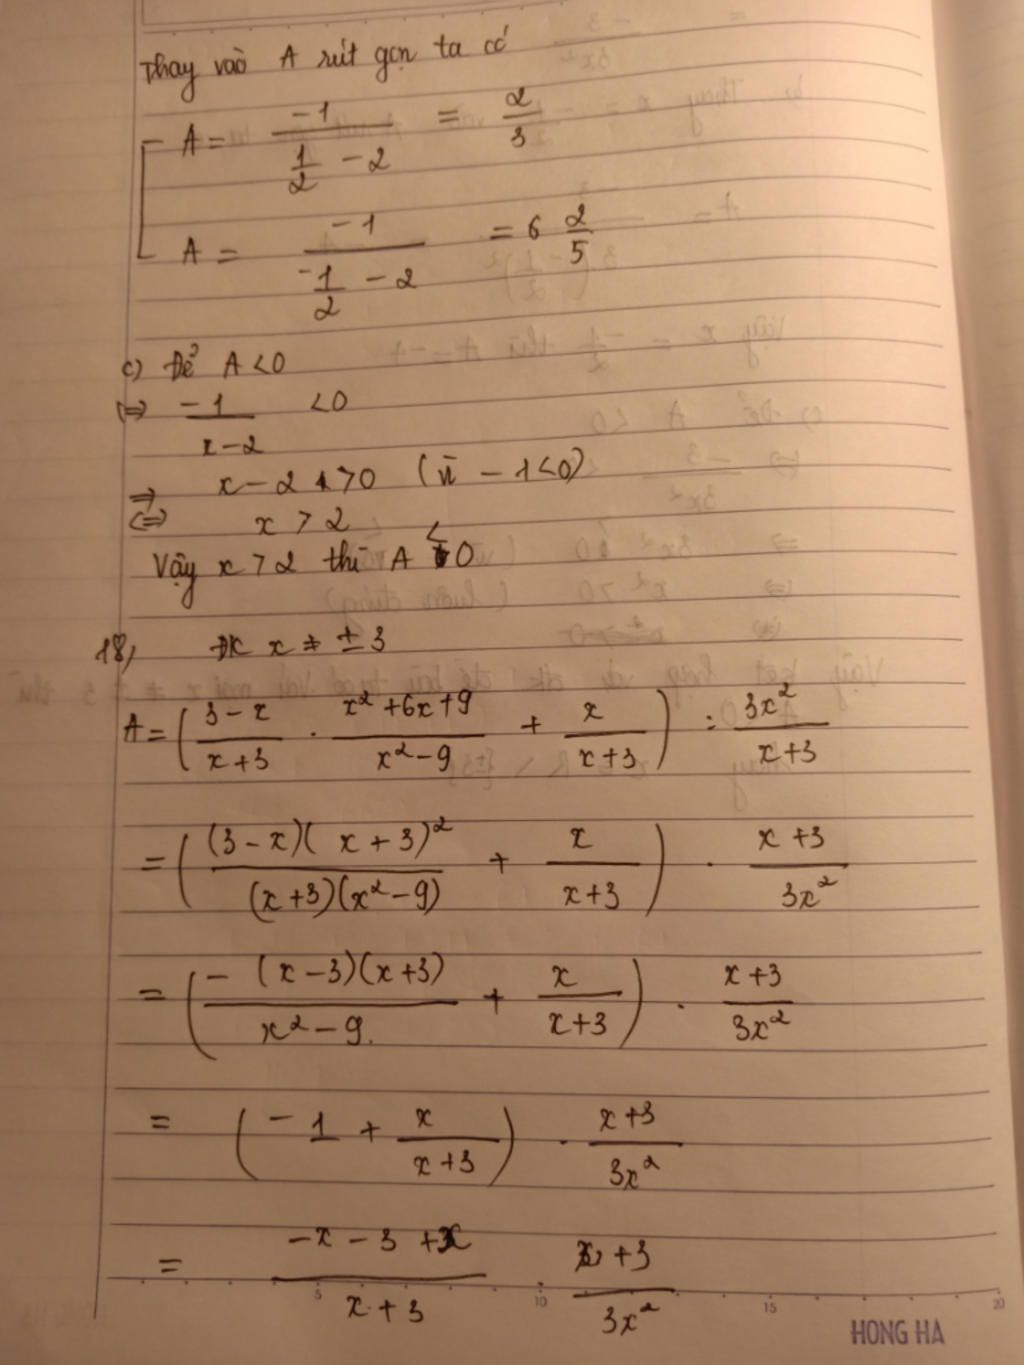 Thay vào A rút gọn ta có
A = \frac{-1}{\frac{1}{2} - 2} = \frac{2}{3}
A = \frac{-1}{\frac{-1}{2} - 2} = 6 \frac{2}{5}
c) Để A < 0
<=> \frac{-1}{x-2} < 0
=> x - 2 > 0 (vì -1 < 0)
<=> x > 2
Vậy x > 2 thì A < 0
18, ĐK x ≠ ± 3
A = ( \frac{3-x}{x+3} . \frac{x^2+6x+9}{x^2-9} + \frac{x}{x+3} ) : \frac{3x^2}{x+3}
= ( \frac{(3-x)(x+3)^2}{(x+3)(x^2-9)} + \frac{x}{x+3} ) . \frac{x+3}{3x^2}
= ( \frac{-(x-3)(x+3)}{x^2-9} + \frac{x}{x+3} ) . \frac{x+3}{3x^2}
= ( -1 + \frac{x}{x+3} ) . \frac{x+3}{3x^2}
= \frac{-x-3+x}{x+3} . \frac{x+3}{3x^2}
5 10 15 20
HONG HA